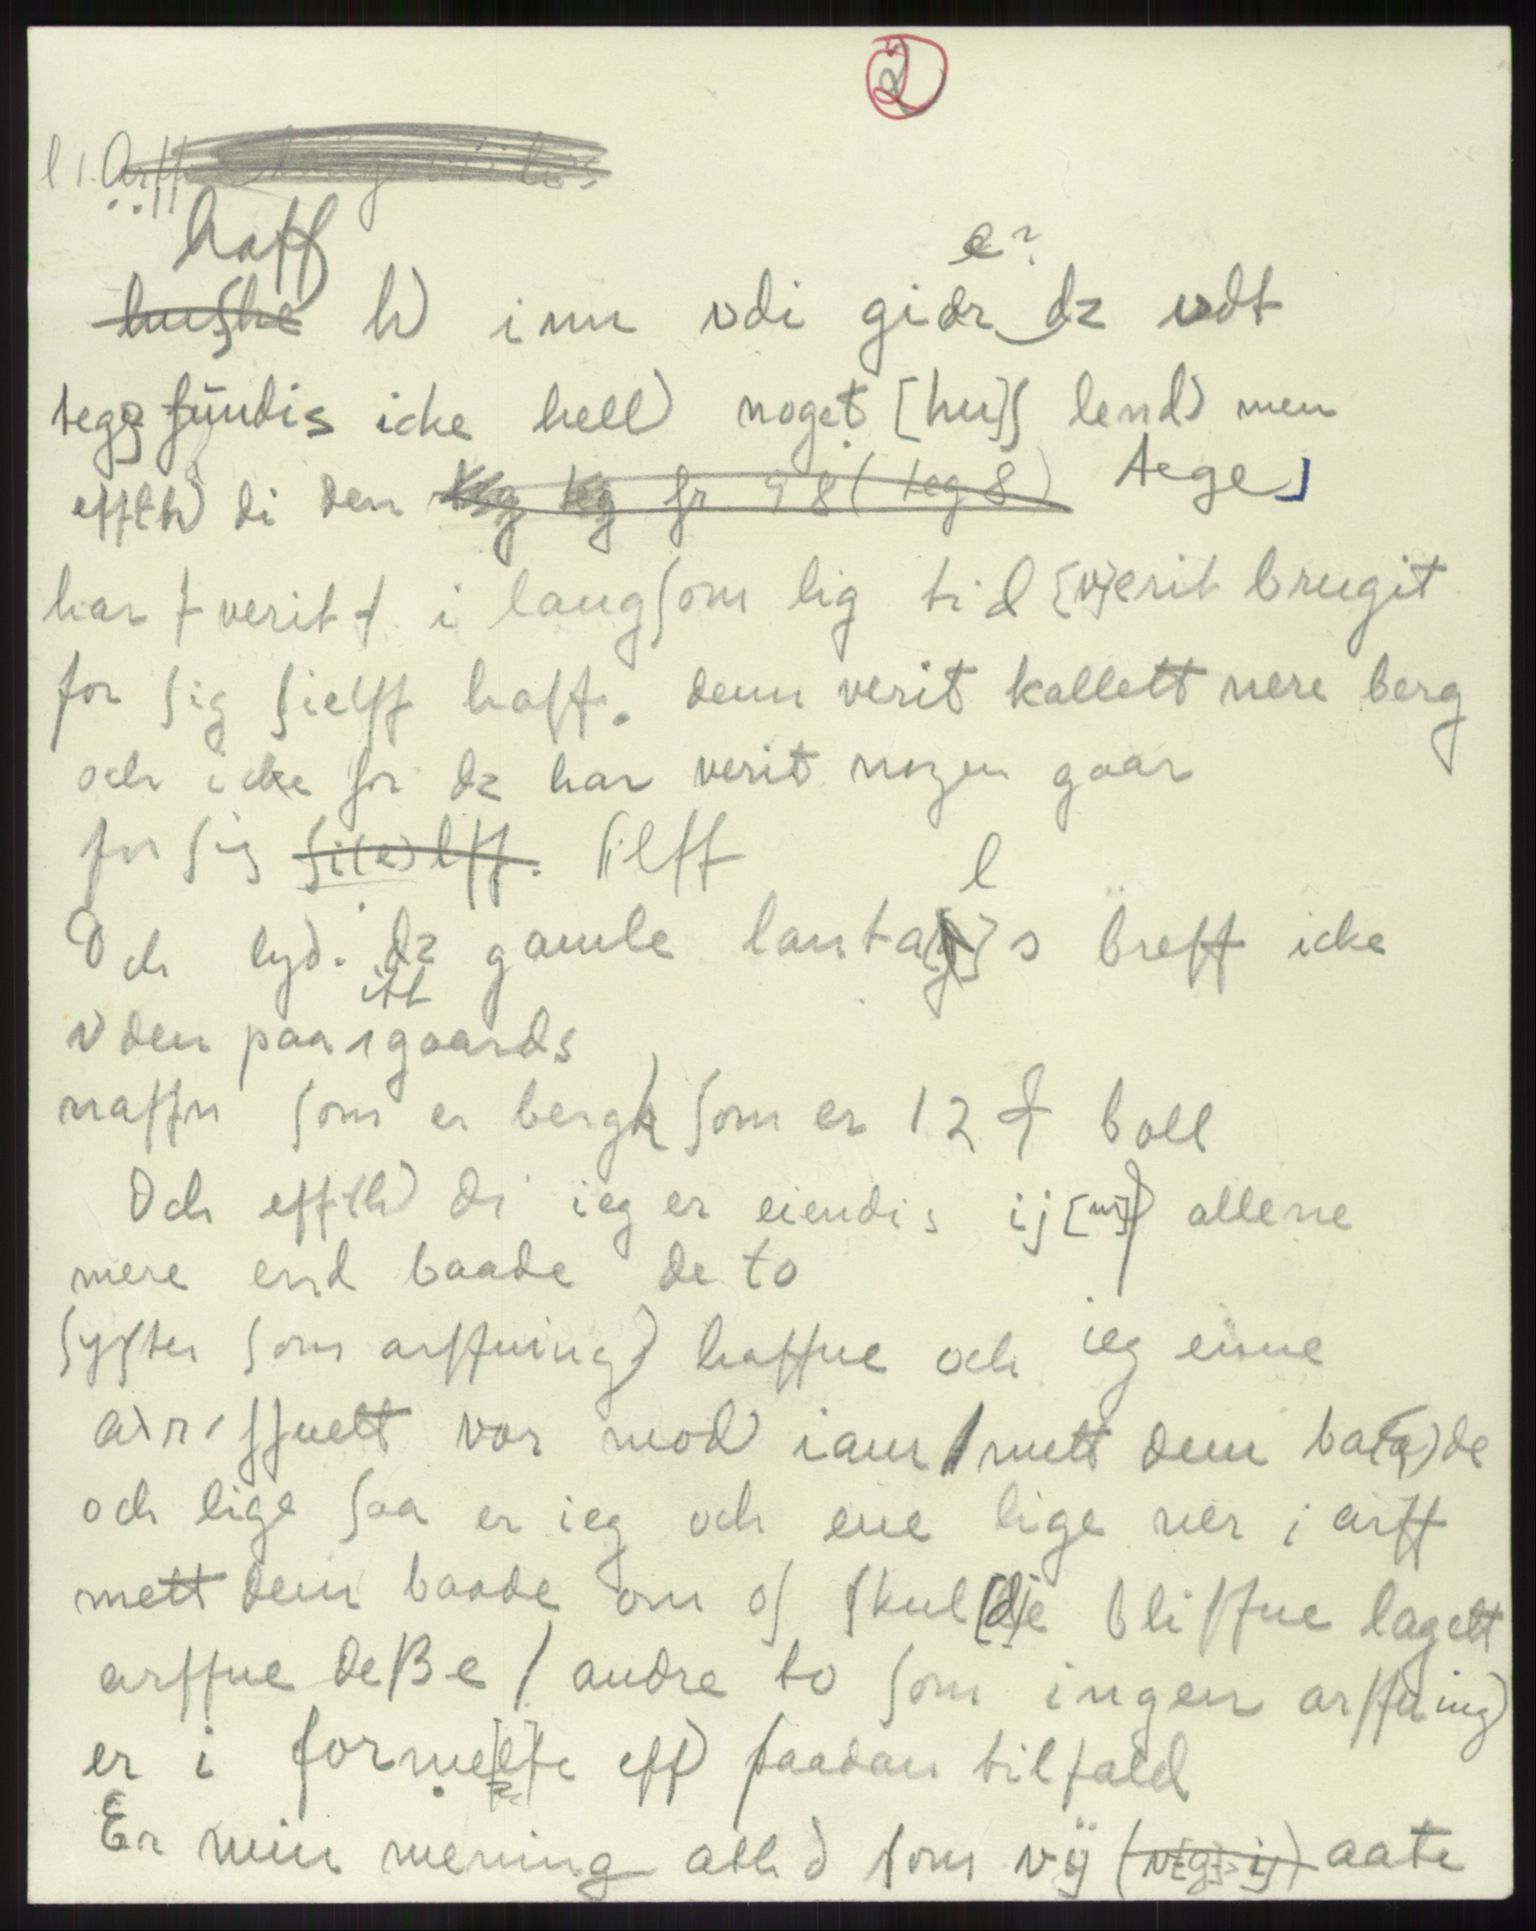 2
haff
hushe h) inn vdi gidr dz vdt
e?
tegz fūndis icke hell) noget [hu]s lend) men
effth) di den fr 98 (teg 8) tege]
har ƚ verit ƚ i laugsom lig tid [v]erit brugit
for sig sielff haff. denn verit kallett nere berg
och icke for dz har verit nogen gaar
for sig si(e)lff. silff
l
Och lyd. dz gamle lanta[g]s breff icke
itt
vden paa 1 gaards
naffn som er berg som er 12 boll
Och effth) di ieg er eiendis ij [m]) allene
mere end baade de to
syster som arffuing) haffue och ieg enne
a)r. ffuett vor mod) iam / mett dem ba(a)de
och lige saa er ieg och ene lige ner i arff
mett dem baade om os skul[d]e bliffue lagett
arffue deßE / andre to som ingen arffuing)
er i forme[l]te eff) saadan tilfald
Er min mening atth) som vÿ (v[g]ij) aate